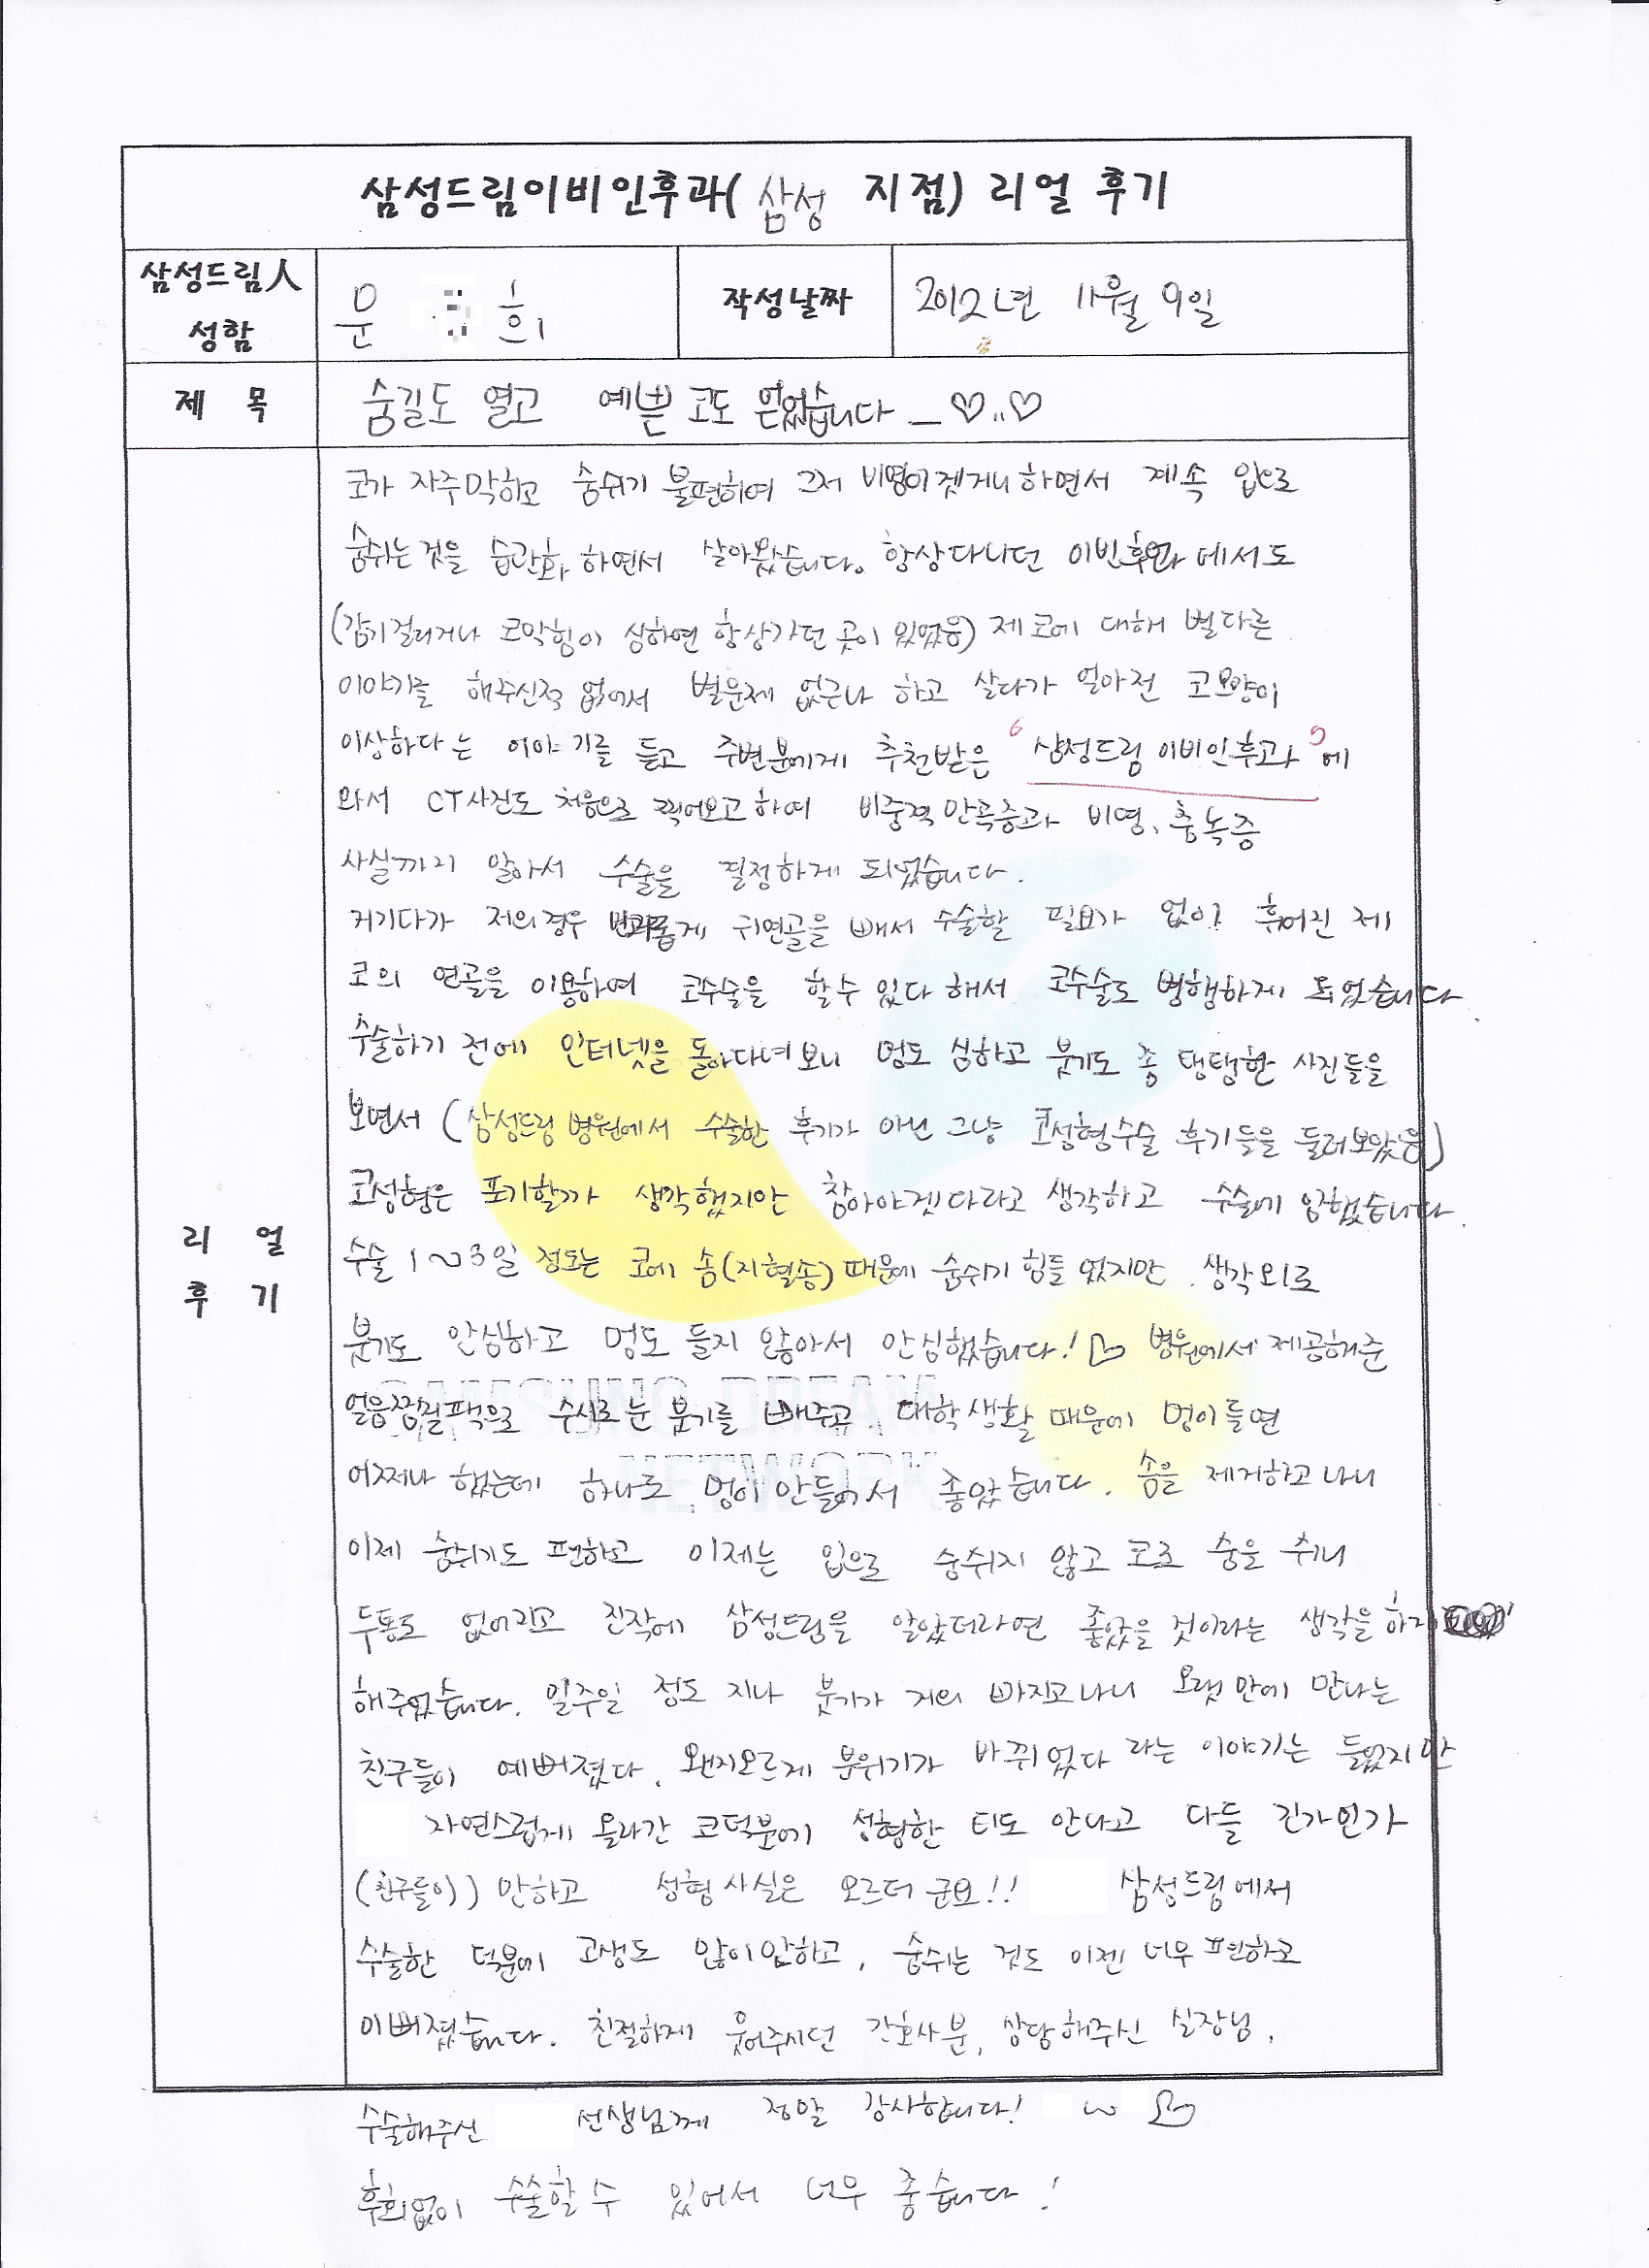 삼성드림이비인후과( 삼성 지점) 리얼 후기
삼성드림人 성함
문 희
작성날짜
2012년 11월 9일
제 목
숨길도 열고 예쁜 코도 얻었습니다 _♡..♡
리 얼
후 기
코가 자주막히고 숨쉬기 불편하여 그저 비염이겟거니하면서 계속 입으로
숨쉬는것을 습관화 하면서 살아왔습니다. 항상다니던 이빈후과에서도
(감기걸리거나 코막힘이 심하면 항상가던 곳이 있었음) 제 코에 대해 별다른
이야기를 해주신적 없어서 별문제 없구나 하고 살다가 얼마전 코모양이
이상하다는 이야기를 듣고 주변분에게 추천받은 ‘삼성드림 이비인후과’에
와서 CT사진도 처음으로 찍어보고하여 비중격만곡증과 비염, 축농증
사실까지 알아서 수술을 결정하게 되었습니다.
거기다가 저의경우 귀연골을 빼서 수술할 필요가 없이 휘어진 제
코의 연골을 이용하여 코수술을 할수 있다 해서 코수술도 병행하게 되었습니다.
수술하기 전에 인터넷을 돌아다녀보니 멍도 심하고 붓기도 좀 탱탱한 사진들을
보면서 (삼성드림 병원에서 수술한 후기가 아닌 그냥 코성형수술 후기들을 둘러보았음)
코성형은 포기할까 생각했지만 참아야겟다라고 생각하고 수술에 임했습니다.
수술 1~3일 정도는 코에 솜(지혈솜) 때문에 숨쉬기 힘들었지만, 생각외로
붓기도 안심하고 멍도 들지 않아서 안심했습니다! ♡ 병원에서 제공해준
얼음찜질팩으로 수시로 눈 붓기를 빼주고, 대학생활 때문에 멍이들면
어쩌나 했는데 하나도 멍이 안들어서 좋았습니다. 솜을 제거하고 나니
이제 숨쉬기도 편하고 이제는 입으로 숨쉬지 않고 코로 숨을 쉬니
두통도 없어지고 진작에 삼성드림을 알았더라면 좋았을 것이라는 생각을 하게
해주었습니다. 일주일 정도 지나 붓기가 거의 빠지고나니 오랫만에 만나는
친구들이 예뻐졌다, 왠지모르게 분위기가 바뀌었다 라는 이야기는 들었지만
자연스럽게 올라간 코덕분에 성형한 티도 안나고 다들 긴가민가
(친구들이) 만하고 성형사실은 모르더군요!! 삼성드림에서
수술한 덕분에 고생도 많이안하고, 숨쉬는 것도 이젠 너무 편하고
이뻐졌습니다. 친절하게 웃어주시던 간호사분, 상담해주신 실장님,
수술해주신 선생님께 정말 감사합니다! ~ ♡
후회없이 수술할수 있어서 너무 좋습니다!
SAMSUNG DREAM
NETWORK